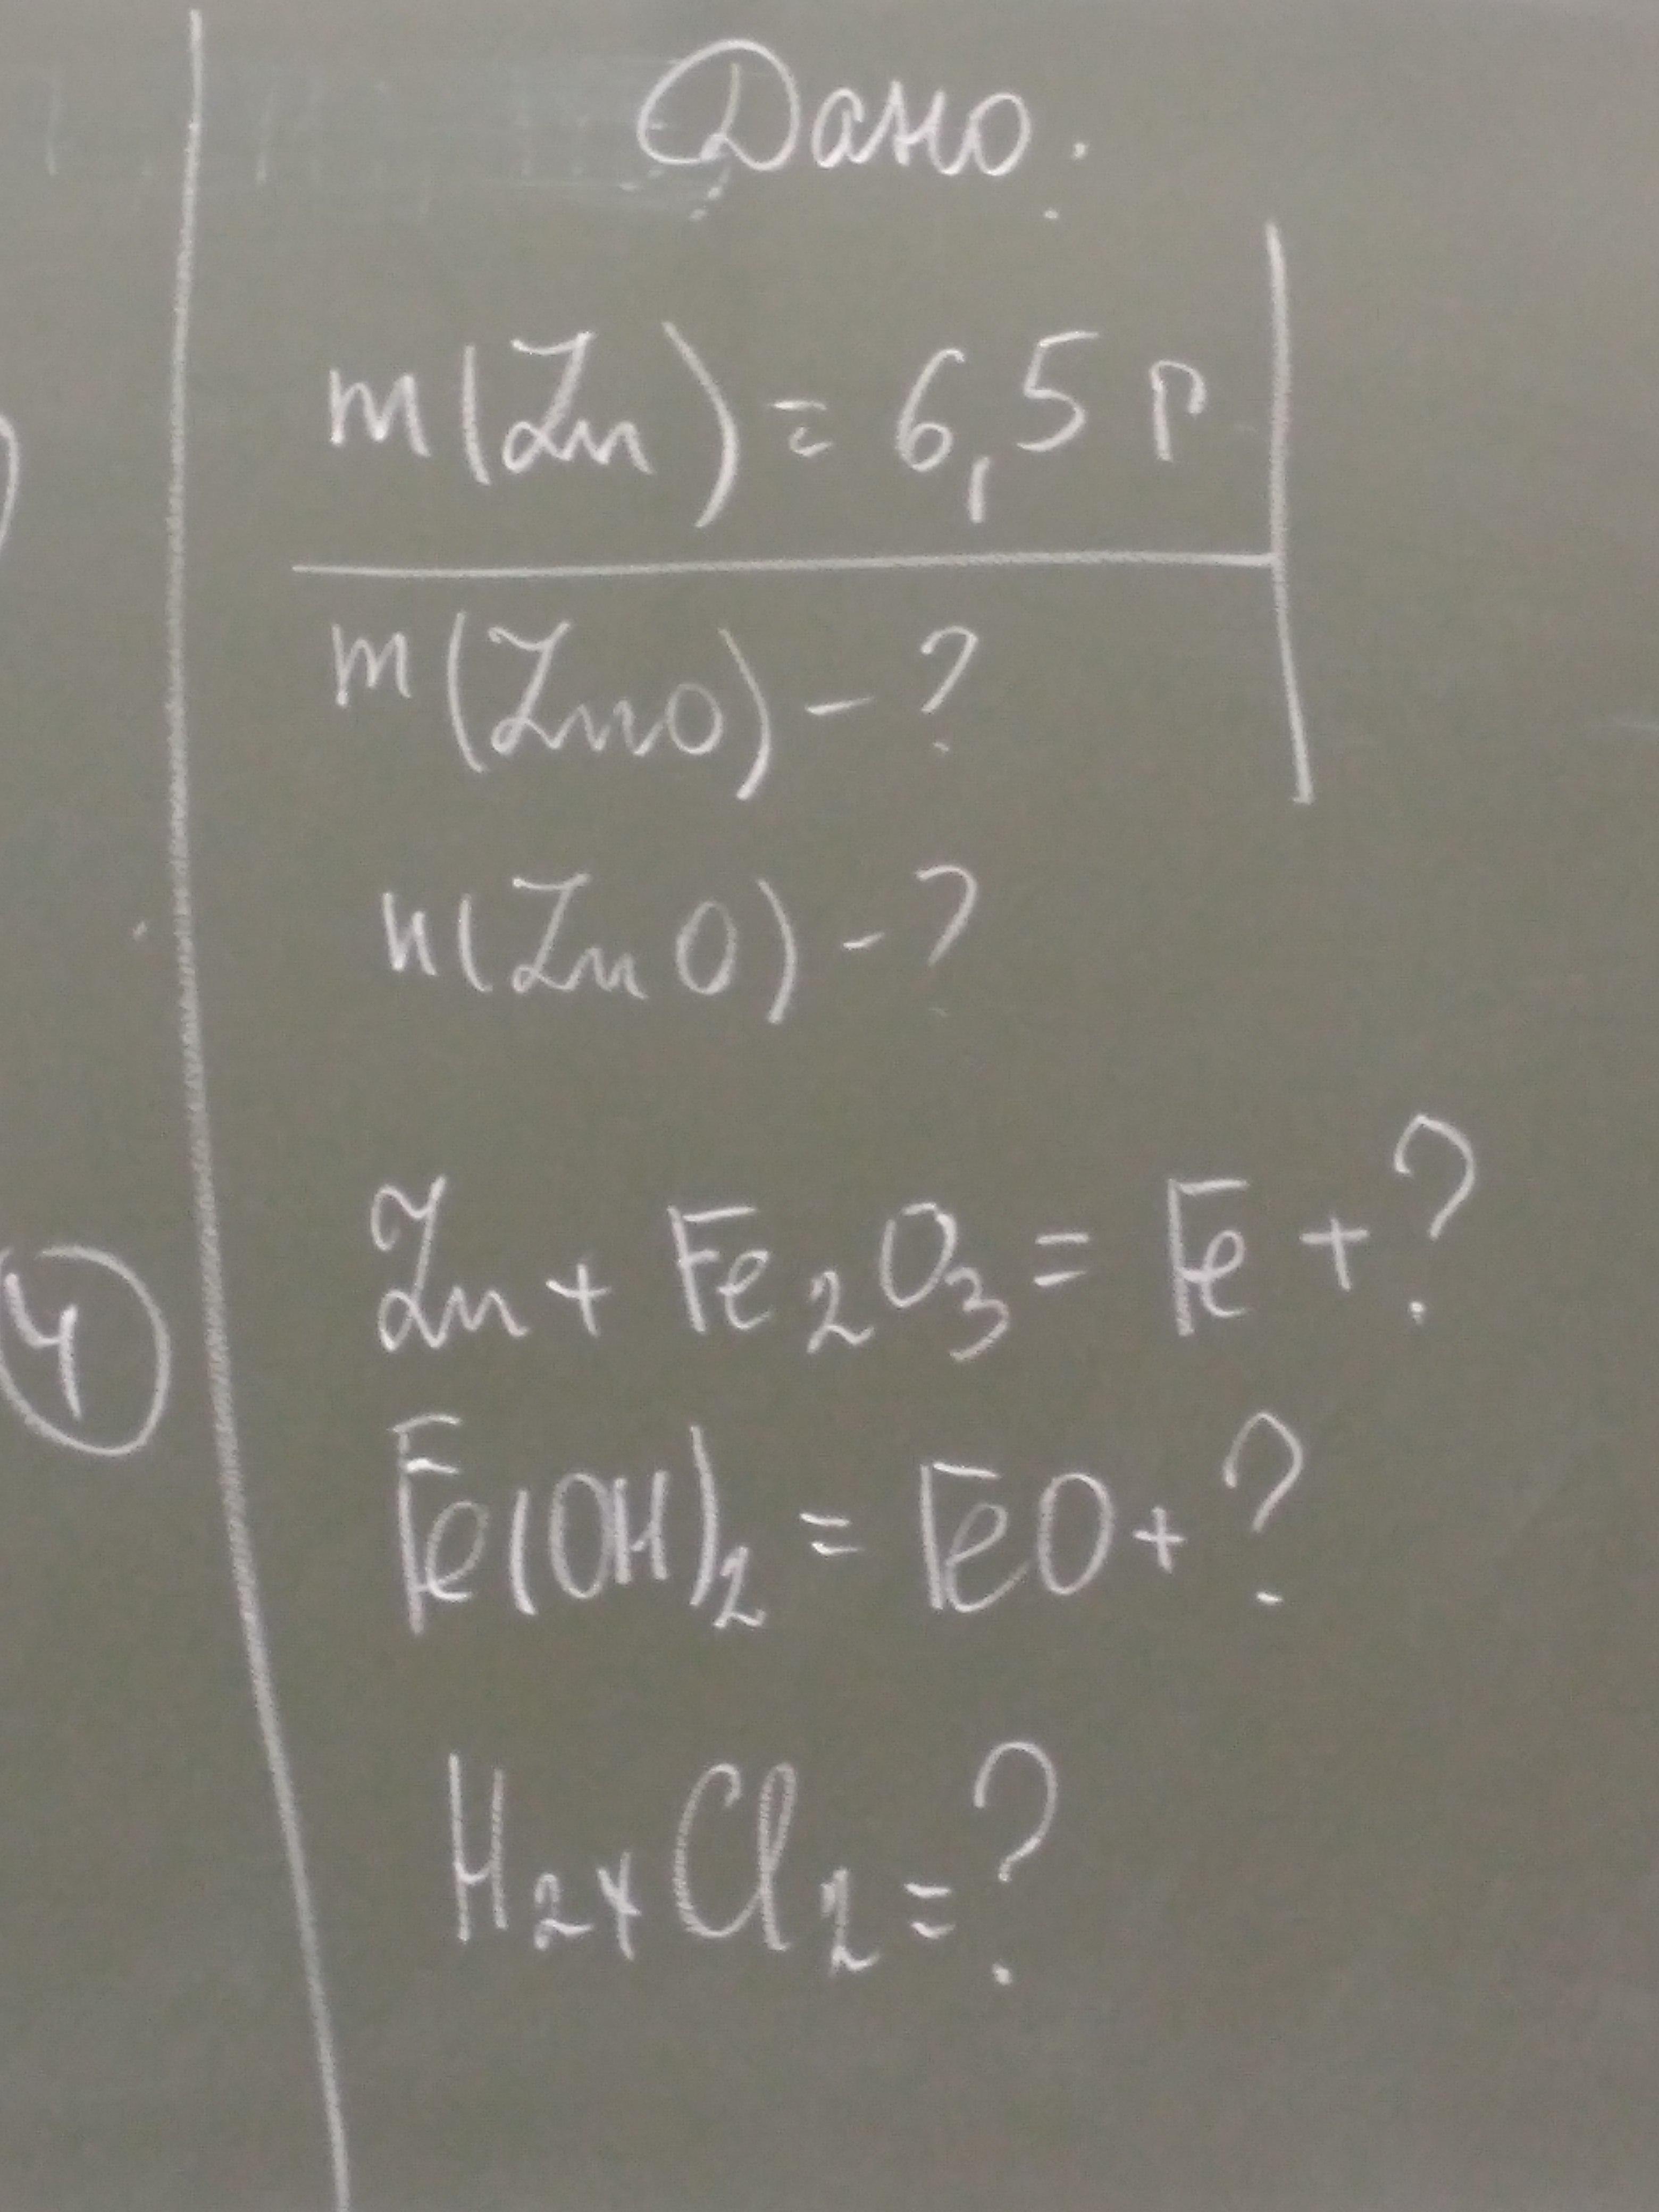 Дано.
m(Zn) = 6,5 г
m(ZnO) - ?
n(ZnO) - ?
Zn + Fe₂O₃ = Fe + ?
4
Fe(OH)₂ = FeO + ?
H₂ + Cl₂ = ?